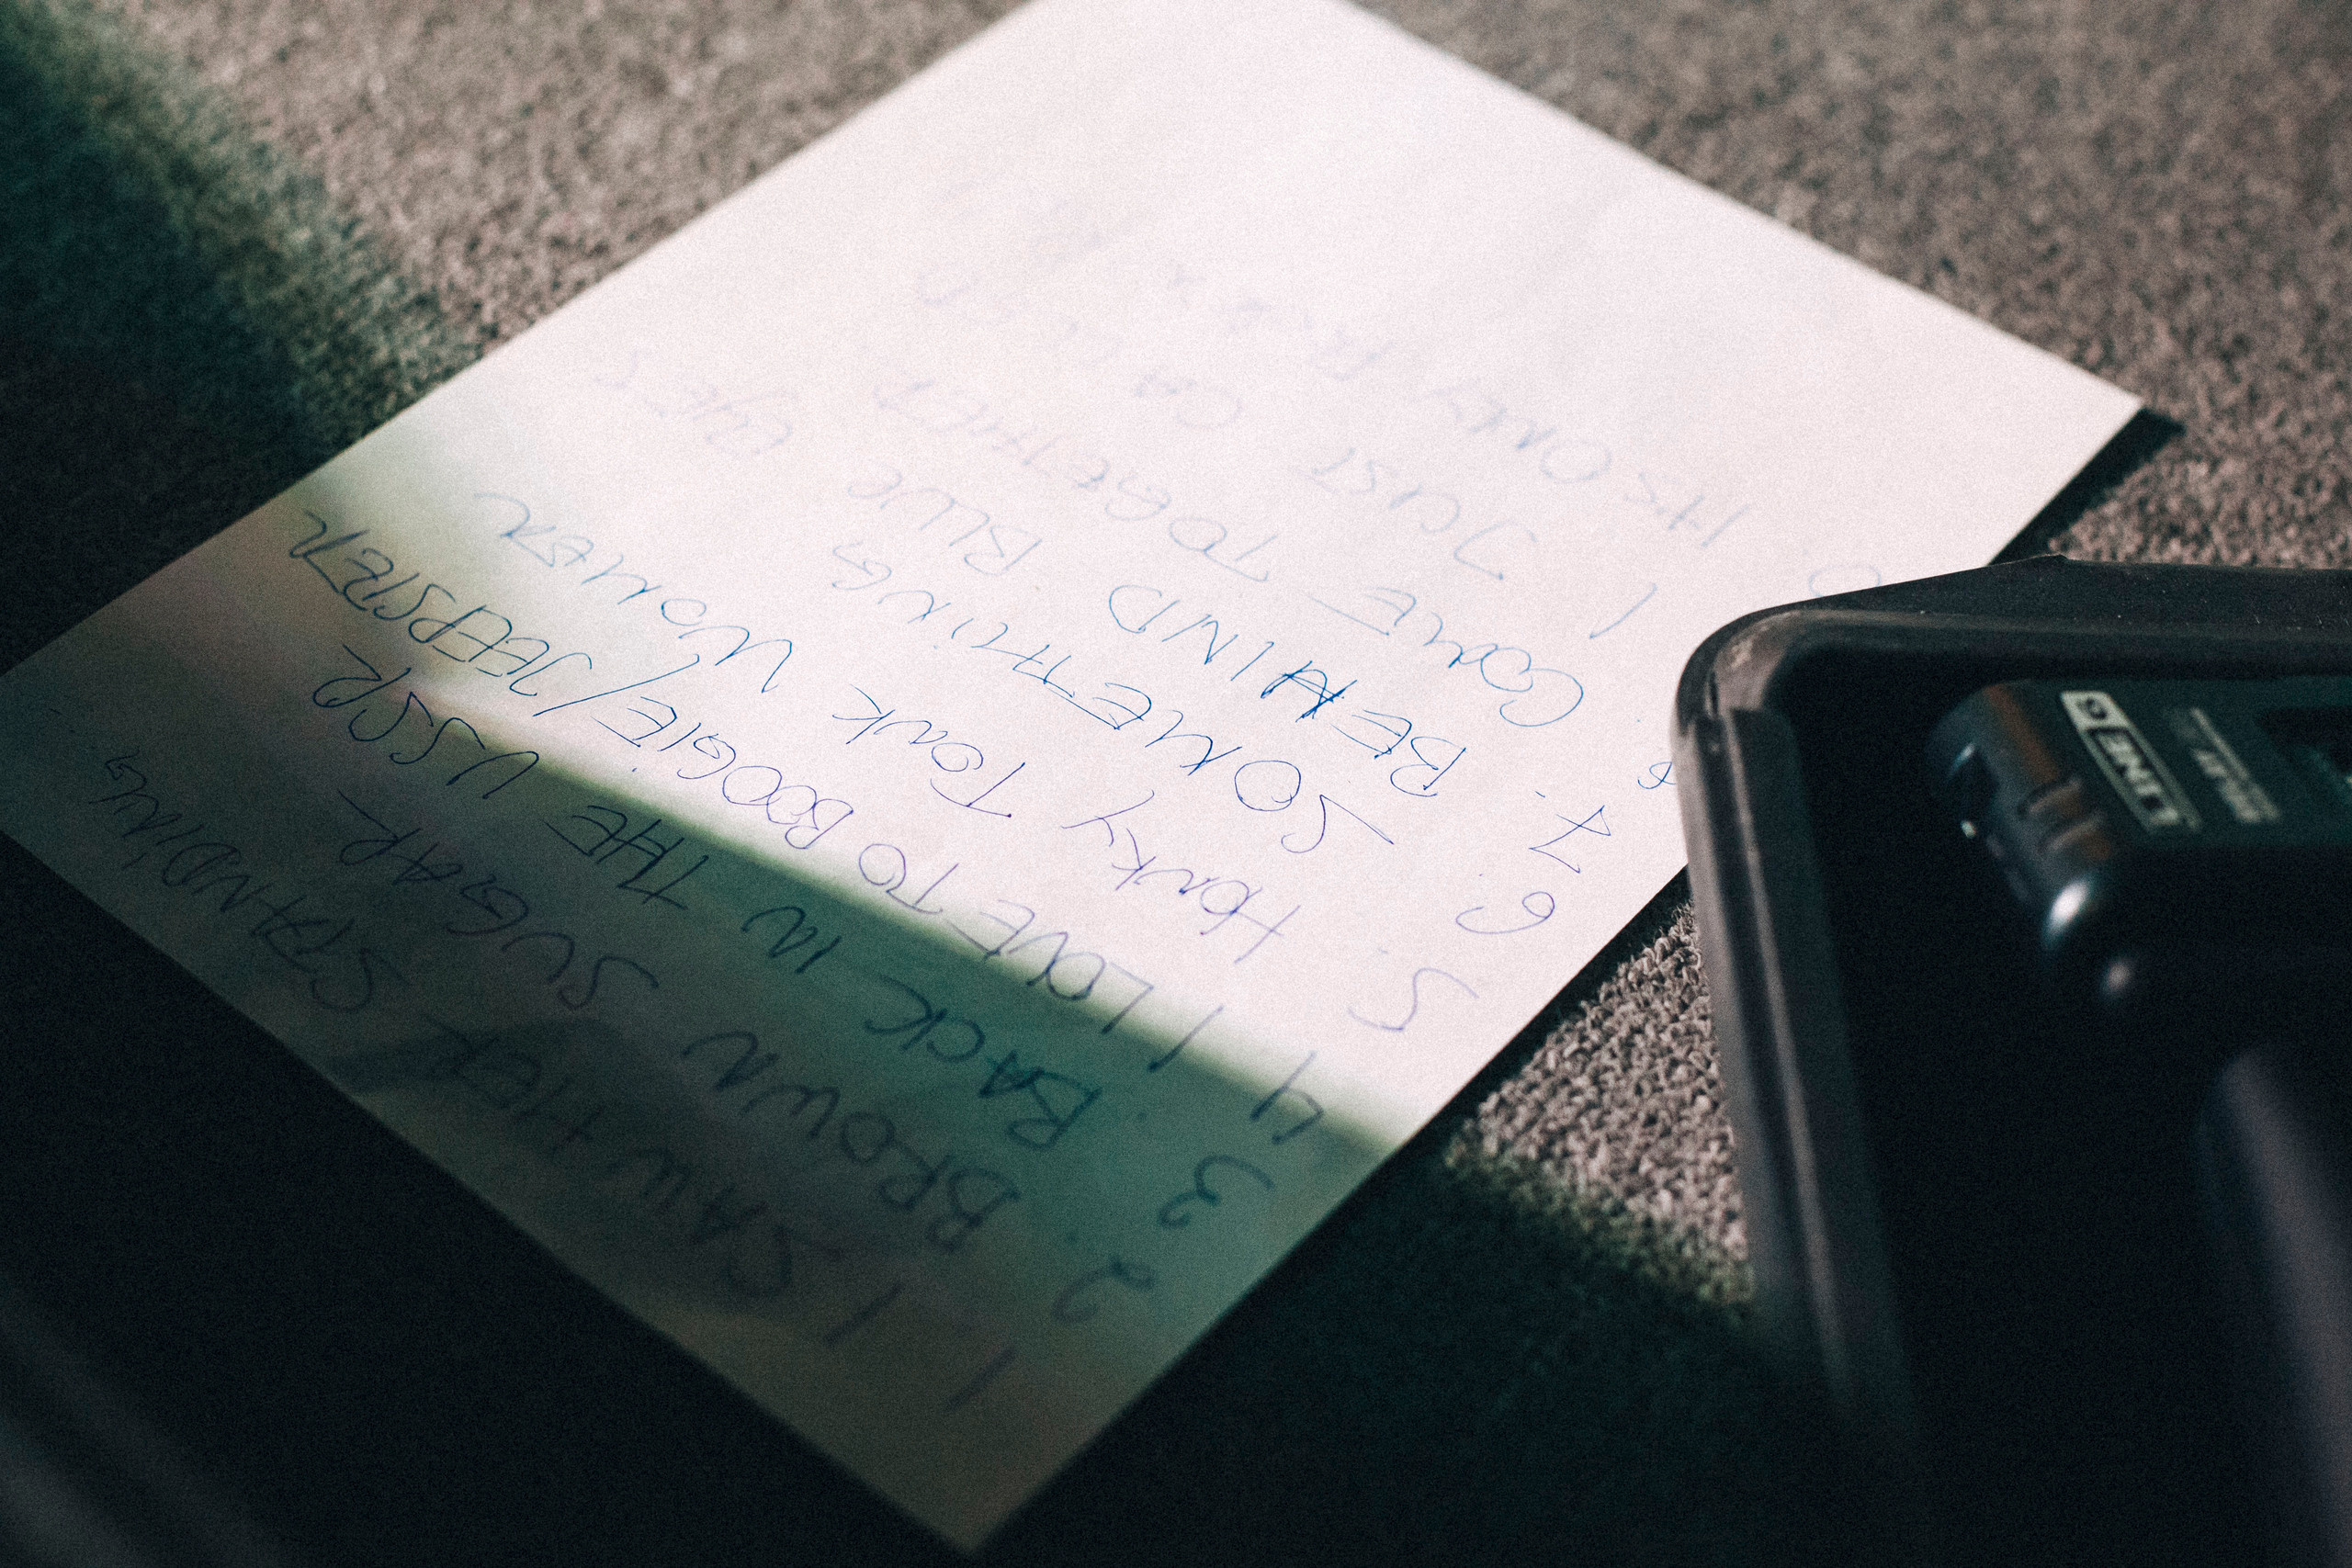 1 I SAW HER STANDING
2. BROWN SUGAR
3 BACK IN THE USSR
4 I LOVE TO BOOGIE/JEEPSTER
5. HONKY TONK WOMEN
6 SOMETHING
7. BEHIND BLUE EYES
8. COME TOGETHER
I JUST
IT'S ONLY
LINE 6